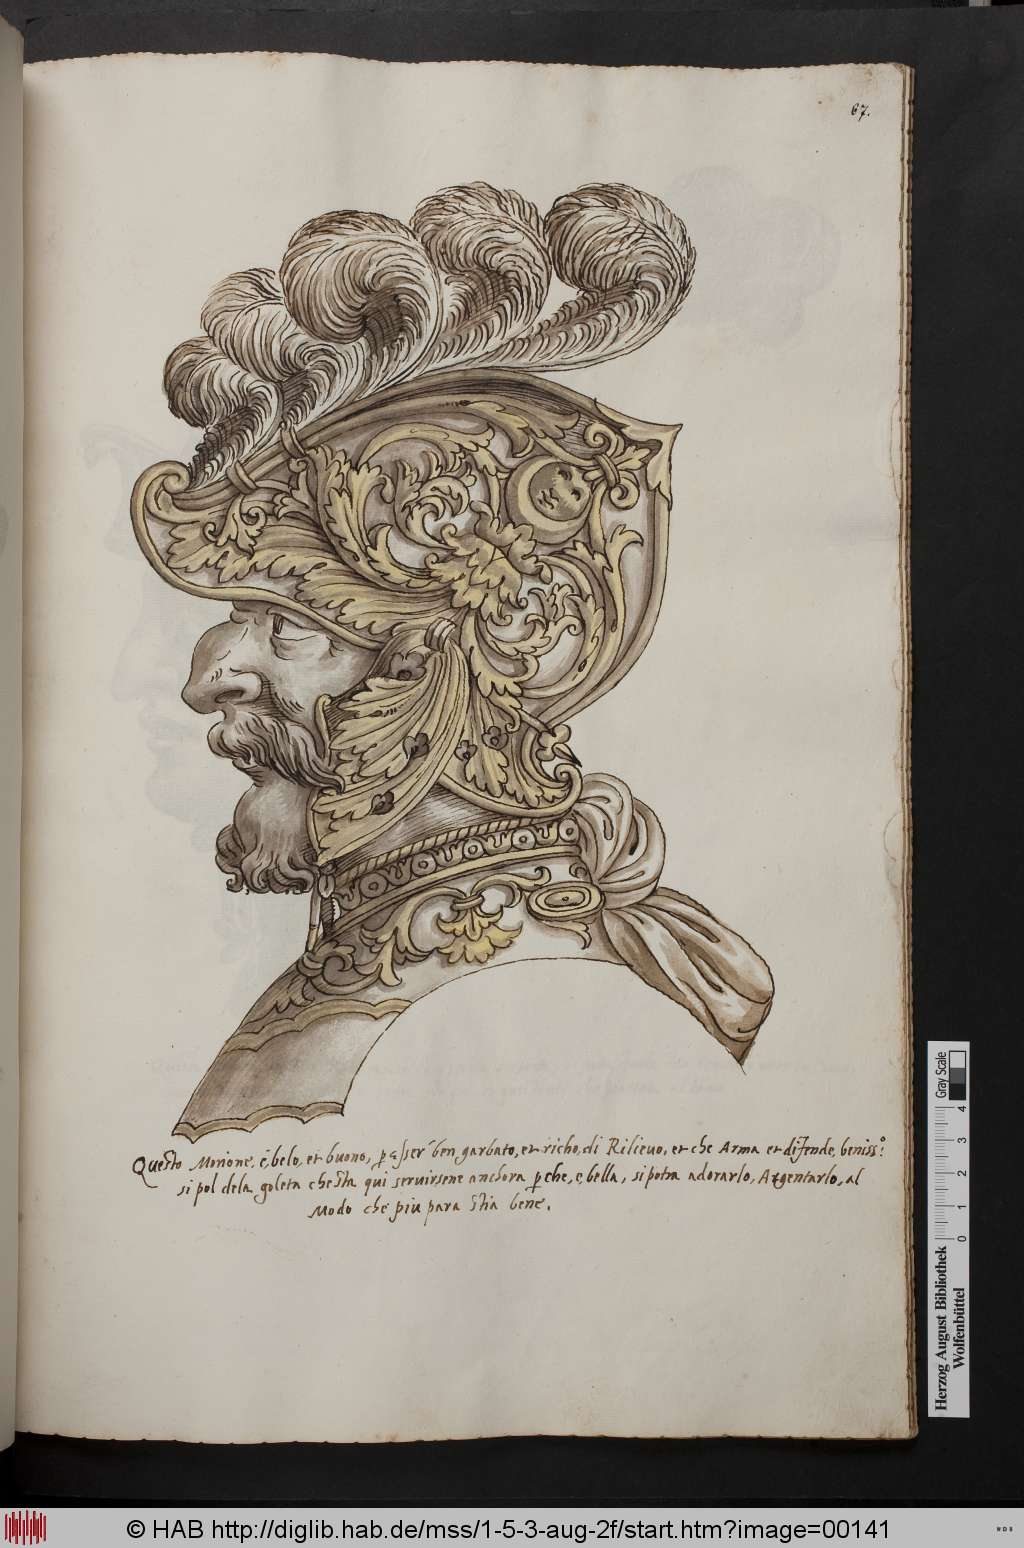 67.
Questo Morione, è, belo, et buono, p esser ben garbato, et richo, di Rilieuo, et che Arma et difende, beniss:º
si pol dela goleta chesta qui seruirsene anchora p che, e, bella, si potra adorarlo, Argentarlo, al
Modo che piu para stia bene.
Gray Scale
0 1 2 3 4
Herzog August Bibliothek
Wolfenbüttel
© HAB http://diglib.hab.de/mss/1-5-3-aug-2f/start.htm?image=00141